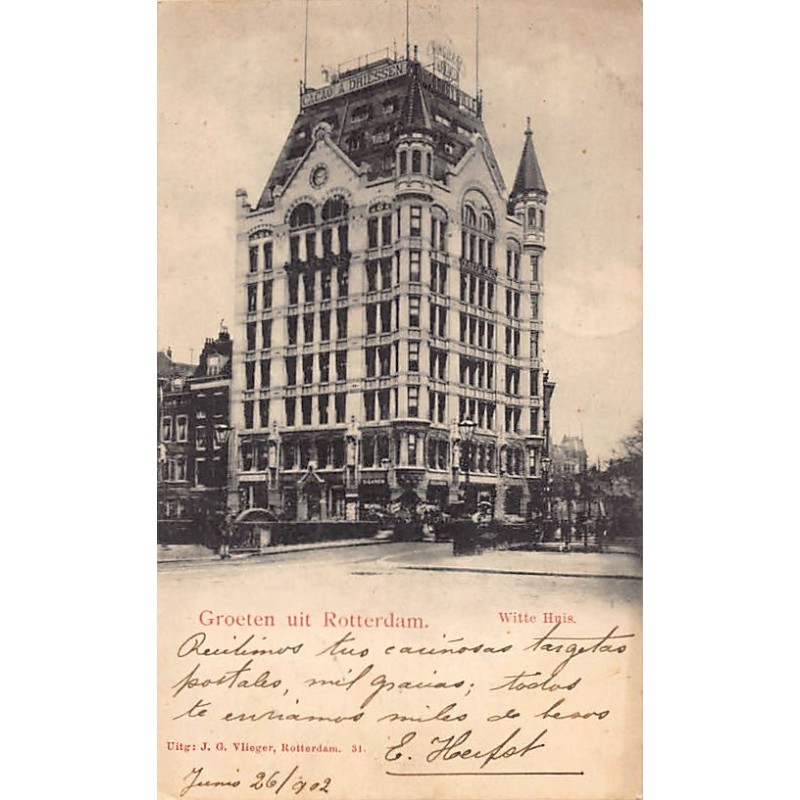 CACAO A DRIESSEN
Groeten uit Rotterdam.
Witte Huis.
Recibimos tus cariñosas targetas
postales, mil gracias; todos
te enviamos miles de besos
Uitg: J. G. Vlieger, Rotterdam. 31.
E.
Junio 26/902